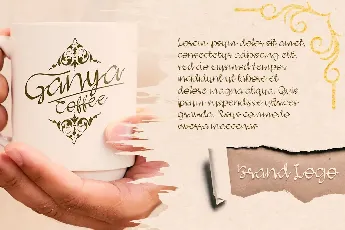 Ganya
Coffee
Lorem ipsum dolor sit amet,
consectetur adipiscing elit,
sed do eiusmod tempor
incididunt ut labore et
dolore magna aliqua. Quis
ipsum suspendisse ultrices
gravida. Risus commodo
viverra maecenas
Brand Logo